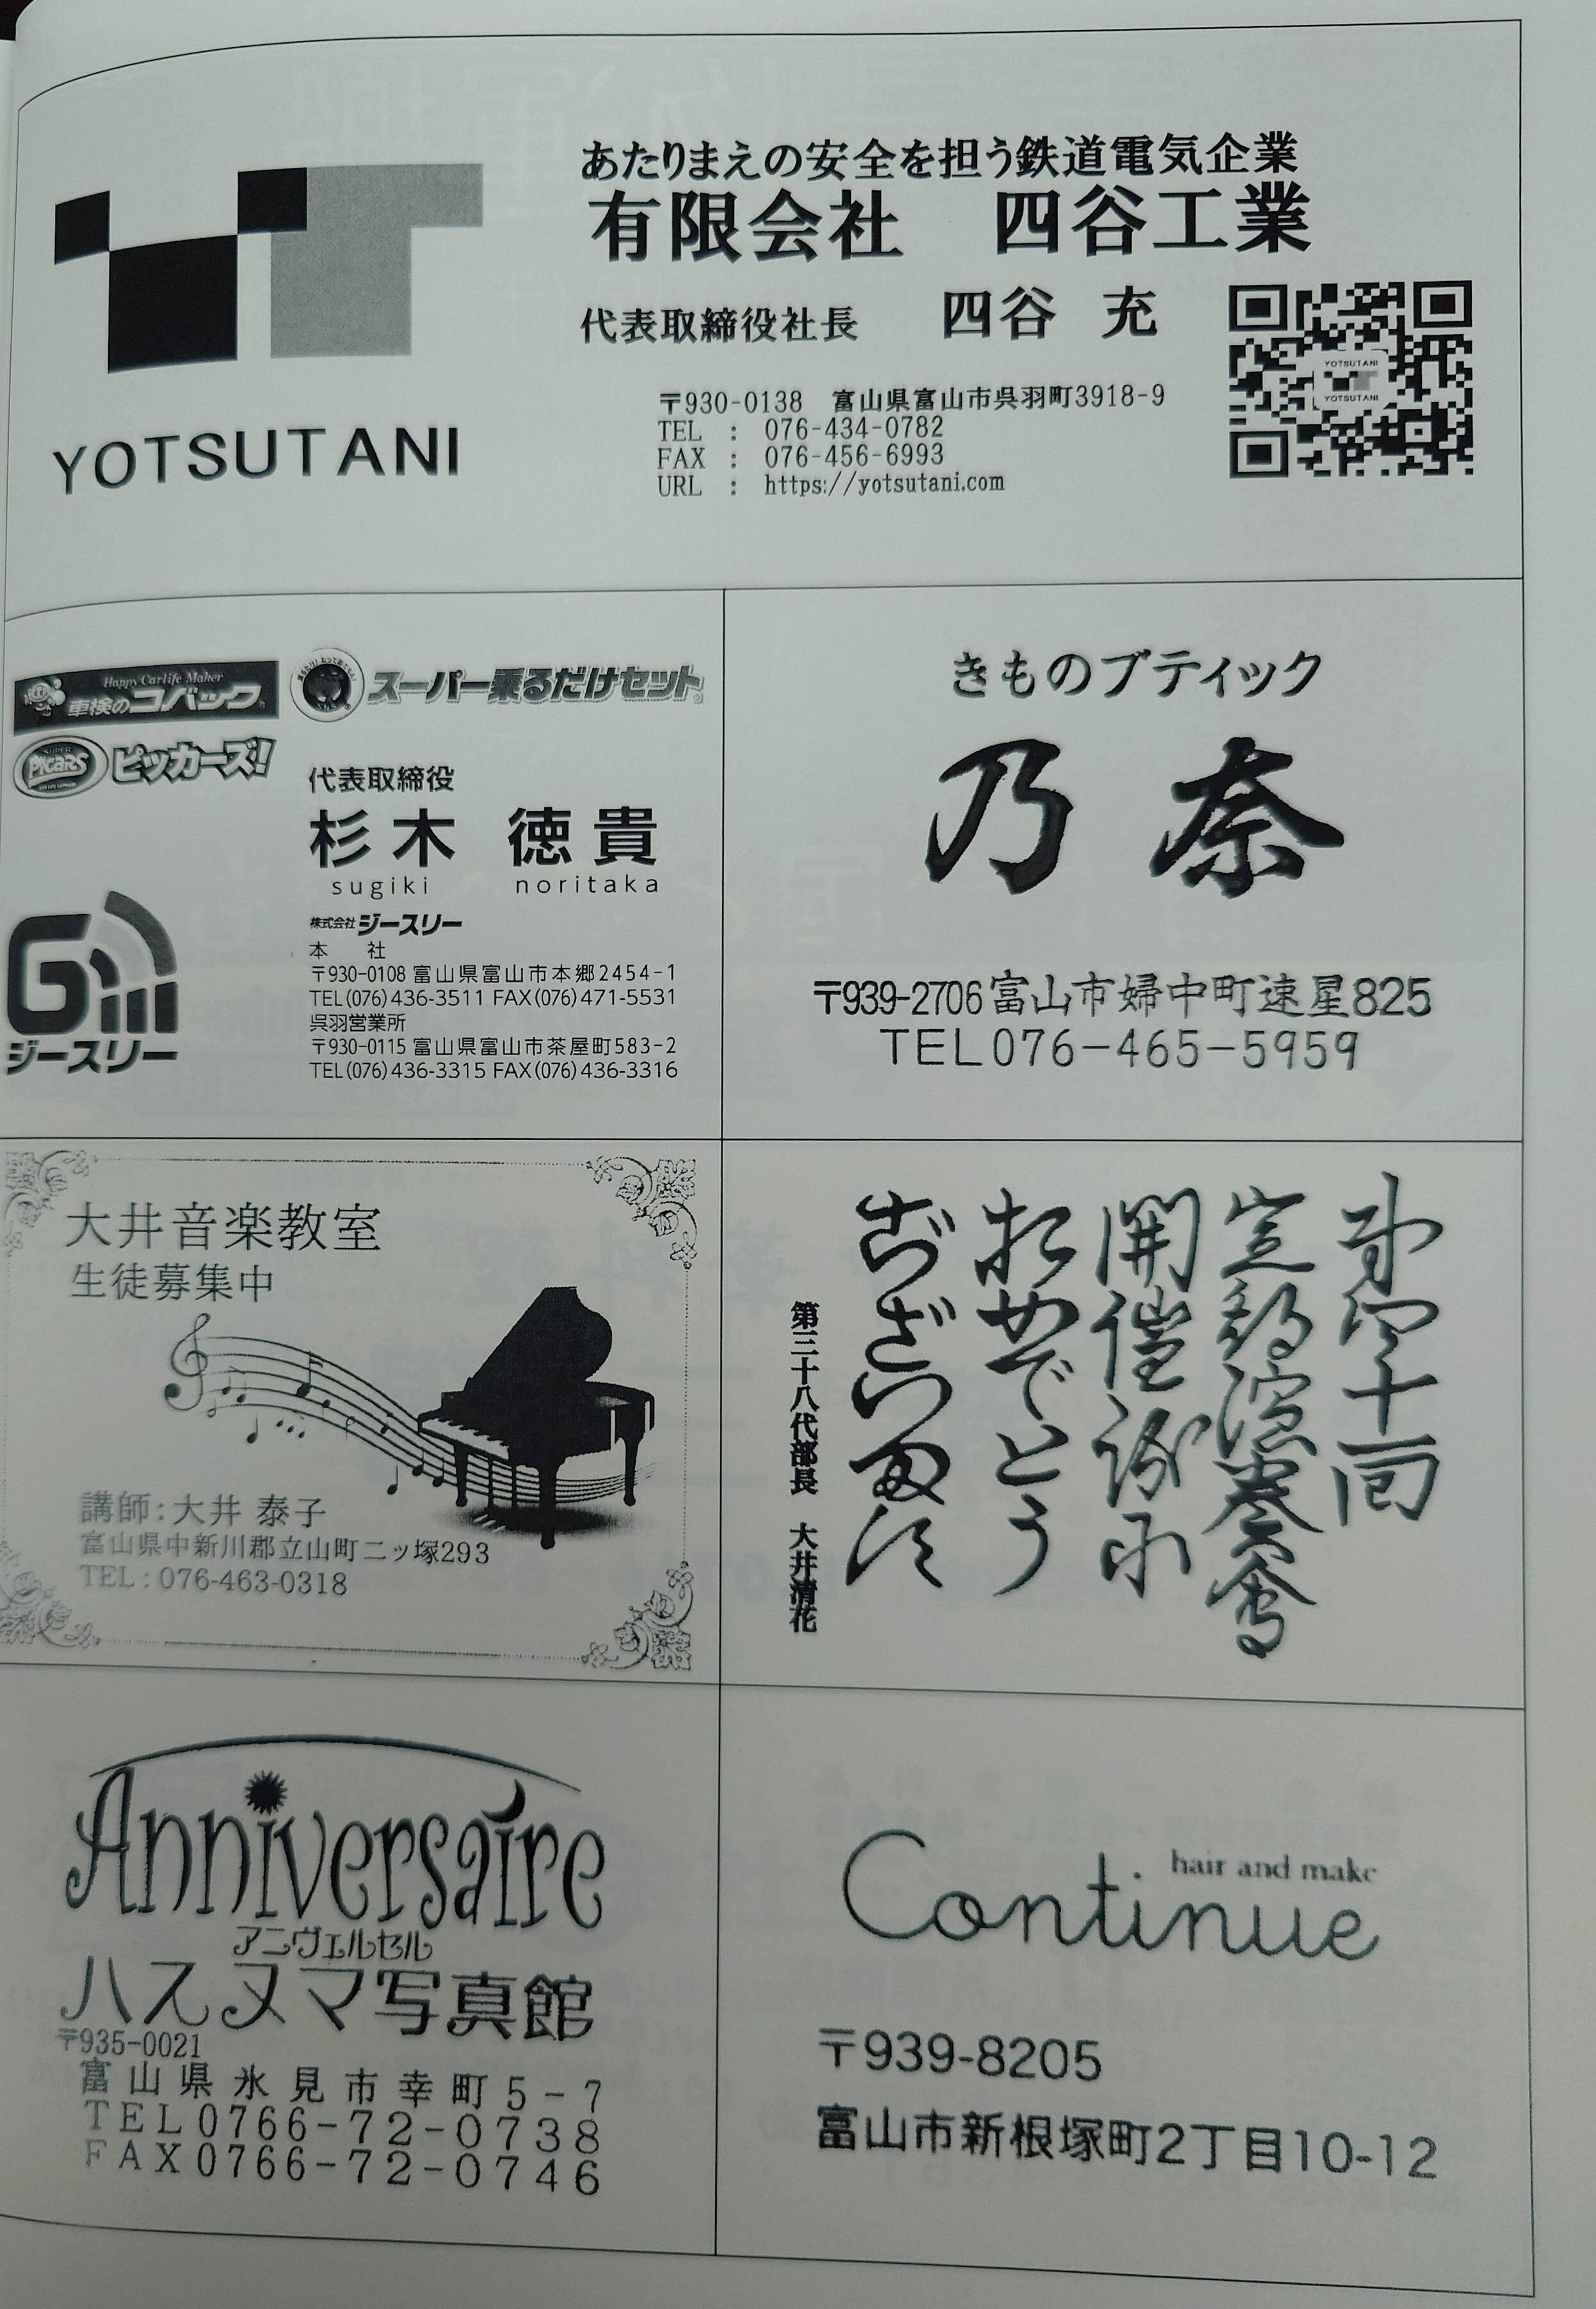 あたりまえの安全を担う鉄道電気企業
有限会社 四谷工業
代表取締役社長 四谷 充
〒930-0138 富山県富山市呉羽町3918-9
TEL : 076-434-0782
FAX : 076-456-6993
URL : https://yotsutani.com
YOTSUTANI
YOTSUTANI
YOTSUTANI
Happy Carlife Maker
車検のコバック
スーパー乗るだけセット
SUPER
PiCARS
ピッカーズ!
代表取締役
杉木 徳貴
sugiki noritaka
株式会社 ジースリー
本 社
〒930-0108 富山県富山市本郷2454-1
TEL(076)436-3511 FAX(076)471-5531
呉羽営業所
〒930-0115 富山県富山市茶屋町583-2
TEL(076)436-3315 FAX(076)436-3316
ジースリー
きものブティック
乃奈
〒939-2706富山市婦中町速星825
TEL076-465-5959
大井音楽教室
生徒募集中
講師:大井 泰子
富山県中新川郡立山町二ッ塚293
TEL:076-463-0318
第四十回
定期演奏会
開催誠に
おめでとう
ございます
第三十八代部長 大井清花
Anniversaire
アニヴェルセル
ハスヌマ写真館
〒935-0021
富山県氷見市幸町5-7
TEL0766-72-0738
FAX0766-72-0746
hair and make
Continue
〒939-8205
富山市新根塚町2丁目10-12